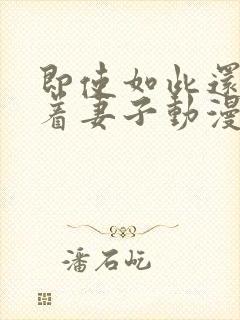 即使如此還
着妻子動漫
潘石屹